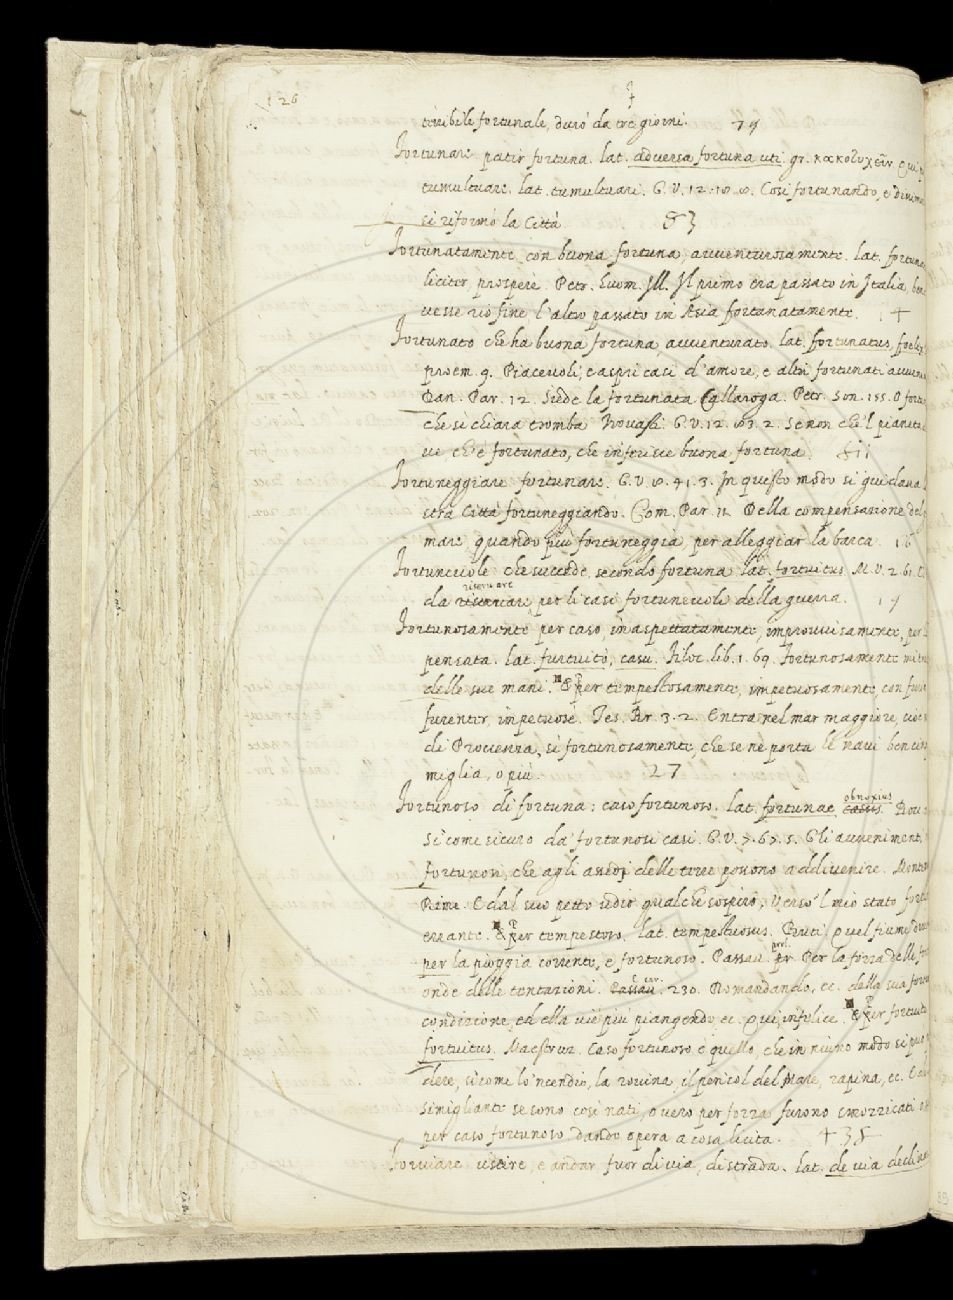 126
F
terribile fortunale, durò da tre giorni. 79
Fortunare patir fortuna. lat. adversa fortuna uti. gr. κακοτυχεῖν
tumultuare. lat. tumultuari. G. V. 12. Così fortunando, e
si riformò la Città 83
Fortunatamente con buona fortuna, avventurosamente. lat.
liciter, prosperè. Petr. huom. Ill. Il primo era passato in Italia,
vesse rio fine l'altro passato in Asia fortunatamente. 4
Fortunato che ha buona fortuna, avventurato. lat. fortunatus,
proem. 9. Piacevoli, e aspri casi d'amore, e altri fortunati
Dan. Par. 12. Siede la fortunata Callaroga. Petr. Son. 155. O
che sì chiara tromba trovasti. G. V. 12. 2. Se non che'l pianeta
ve ch'è fortunato, che inferisce buona fortuna.
Fortuneggiare fortunare. G. V. 41. 3. In questo modo si guidava
stra Città fortuneggiando. Com. Par. 11. Della compensazione del
mare quando più fortuneggia, per alleggiar la barca 16
Fortunevole che succede, secondo fortuna. lat. fortuitus. M. V. 2. 61.
da riservare per li casi fortunevoli della guerra. 19
Fortunosamente per caso, inaspettatamente, improvvisamente,
pensata. lat. fortuitò, casu. Filoc. lib. 1. 69. Fortunosamente
delle sue mani. & per tempestosamente, impetuosamente, con
furenter, inpetuosè. Tes. Br. 3. 2. Entra nel mar maggiore,
di Provenza, sì fortunosamente, che se ne porta le navi ben
miglia, o più. 27
Fortunoso di fortuna: caso fortunoso. lat. fortunae obnoxius.
Sì come sicuro da' fortunosi casi. G. V. 7. 67. 5. Gli
fortunosi, che agli assedi delle terre possono addivenire.
Rime. E dal suo petto udio qualche sospiro, Verso'l mio stato
errante. & per tempestoso. lat. tempestuosus. Quel fiume
per la pioggia corrente, e fortunoso. Passav. prol. Per la forza delle
onde delle tentazioni. E car. 230. Domandando, ec. della sua
condizione, ed ella vie più piangendo, ec. infelice. & per
fortuitus. Maestruz. Caso fortunoso è quello, che in niuno modo si può
dere, sì come lo'ncendio, la rovina, il pericol del Mare, rapina, ec.
simigliante se sono così nati, overo per forza furono smozzicati
per caso fortunoso dando opera a cosa licita. 438
Forviare uscire, e andar fuor di via, di strada. lat. de via